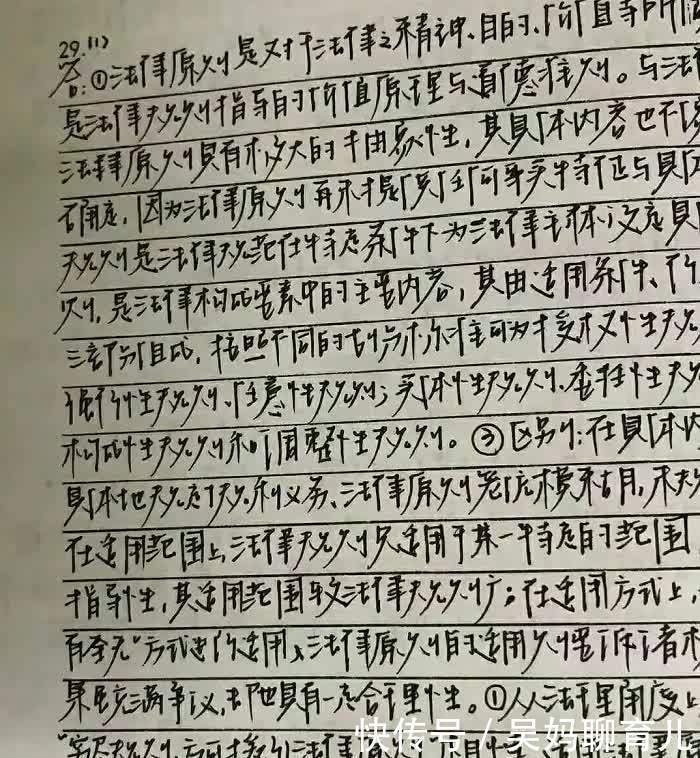 29.(1)
答:①法律原则是对于法律之精神、目的、价值等所
是法律规则指导的价值原理与道德准则。与法
法律原则具有较大的抽象性,其具体内容也不
确定,因为法律原则再不提供任何事实特征与具
规则是法律规范在特定条件下为法律主体设定具
则,是法律构成要素中的主要内容,其由适用条件、行
三部分组成,按照不同的划分标准可为授权性规
强行性规则、任意性规则;实体性规则、委任性规
构成性规则和调整性规则。③区别:在具体内
具体地规定了权利义务、法律原则笼统模糊,未规
在适用范围上,法律规则只适用于某一特定的范围
指导性,其适用范围较法律规则广;在适用方式上,
有全无”方式进行适用,法律原则的适用则
果虽充满争议,却也具有一定合理性。①从法理角度上
“穷尽规则,方可援引法律原则”
快传号 / 吴妈聊育儿